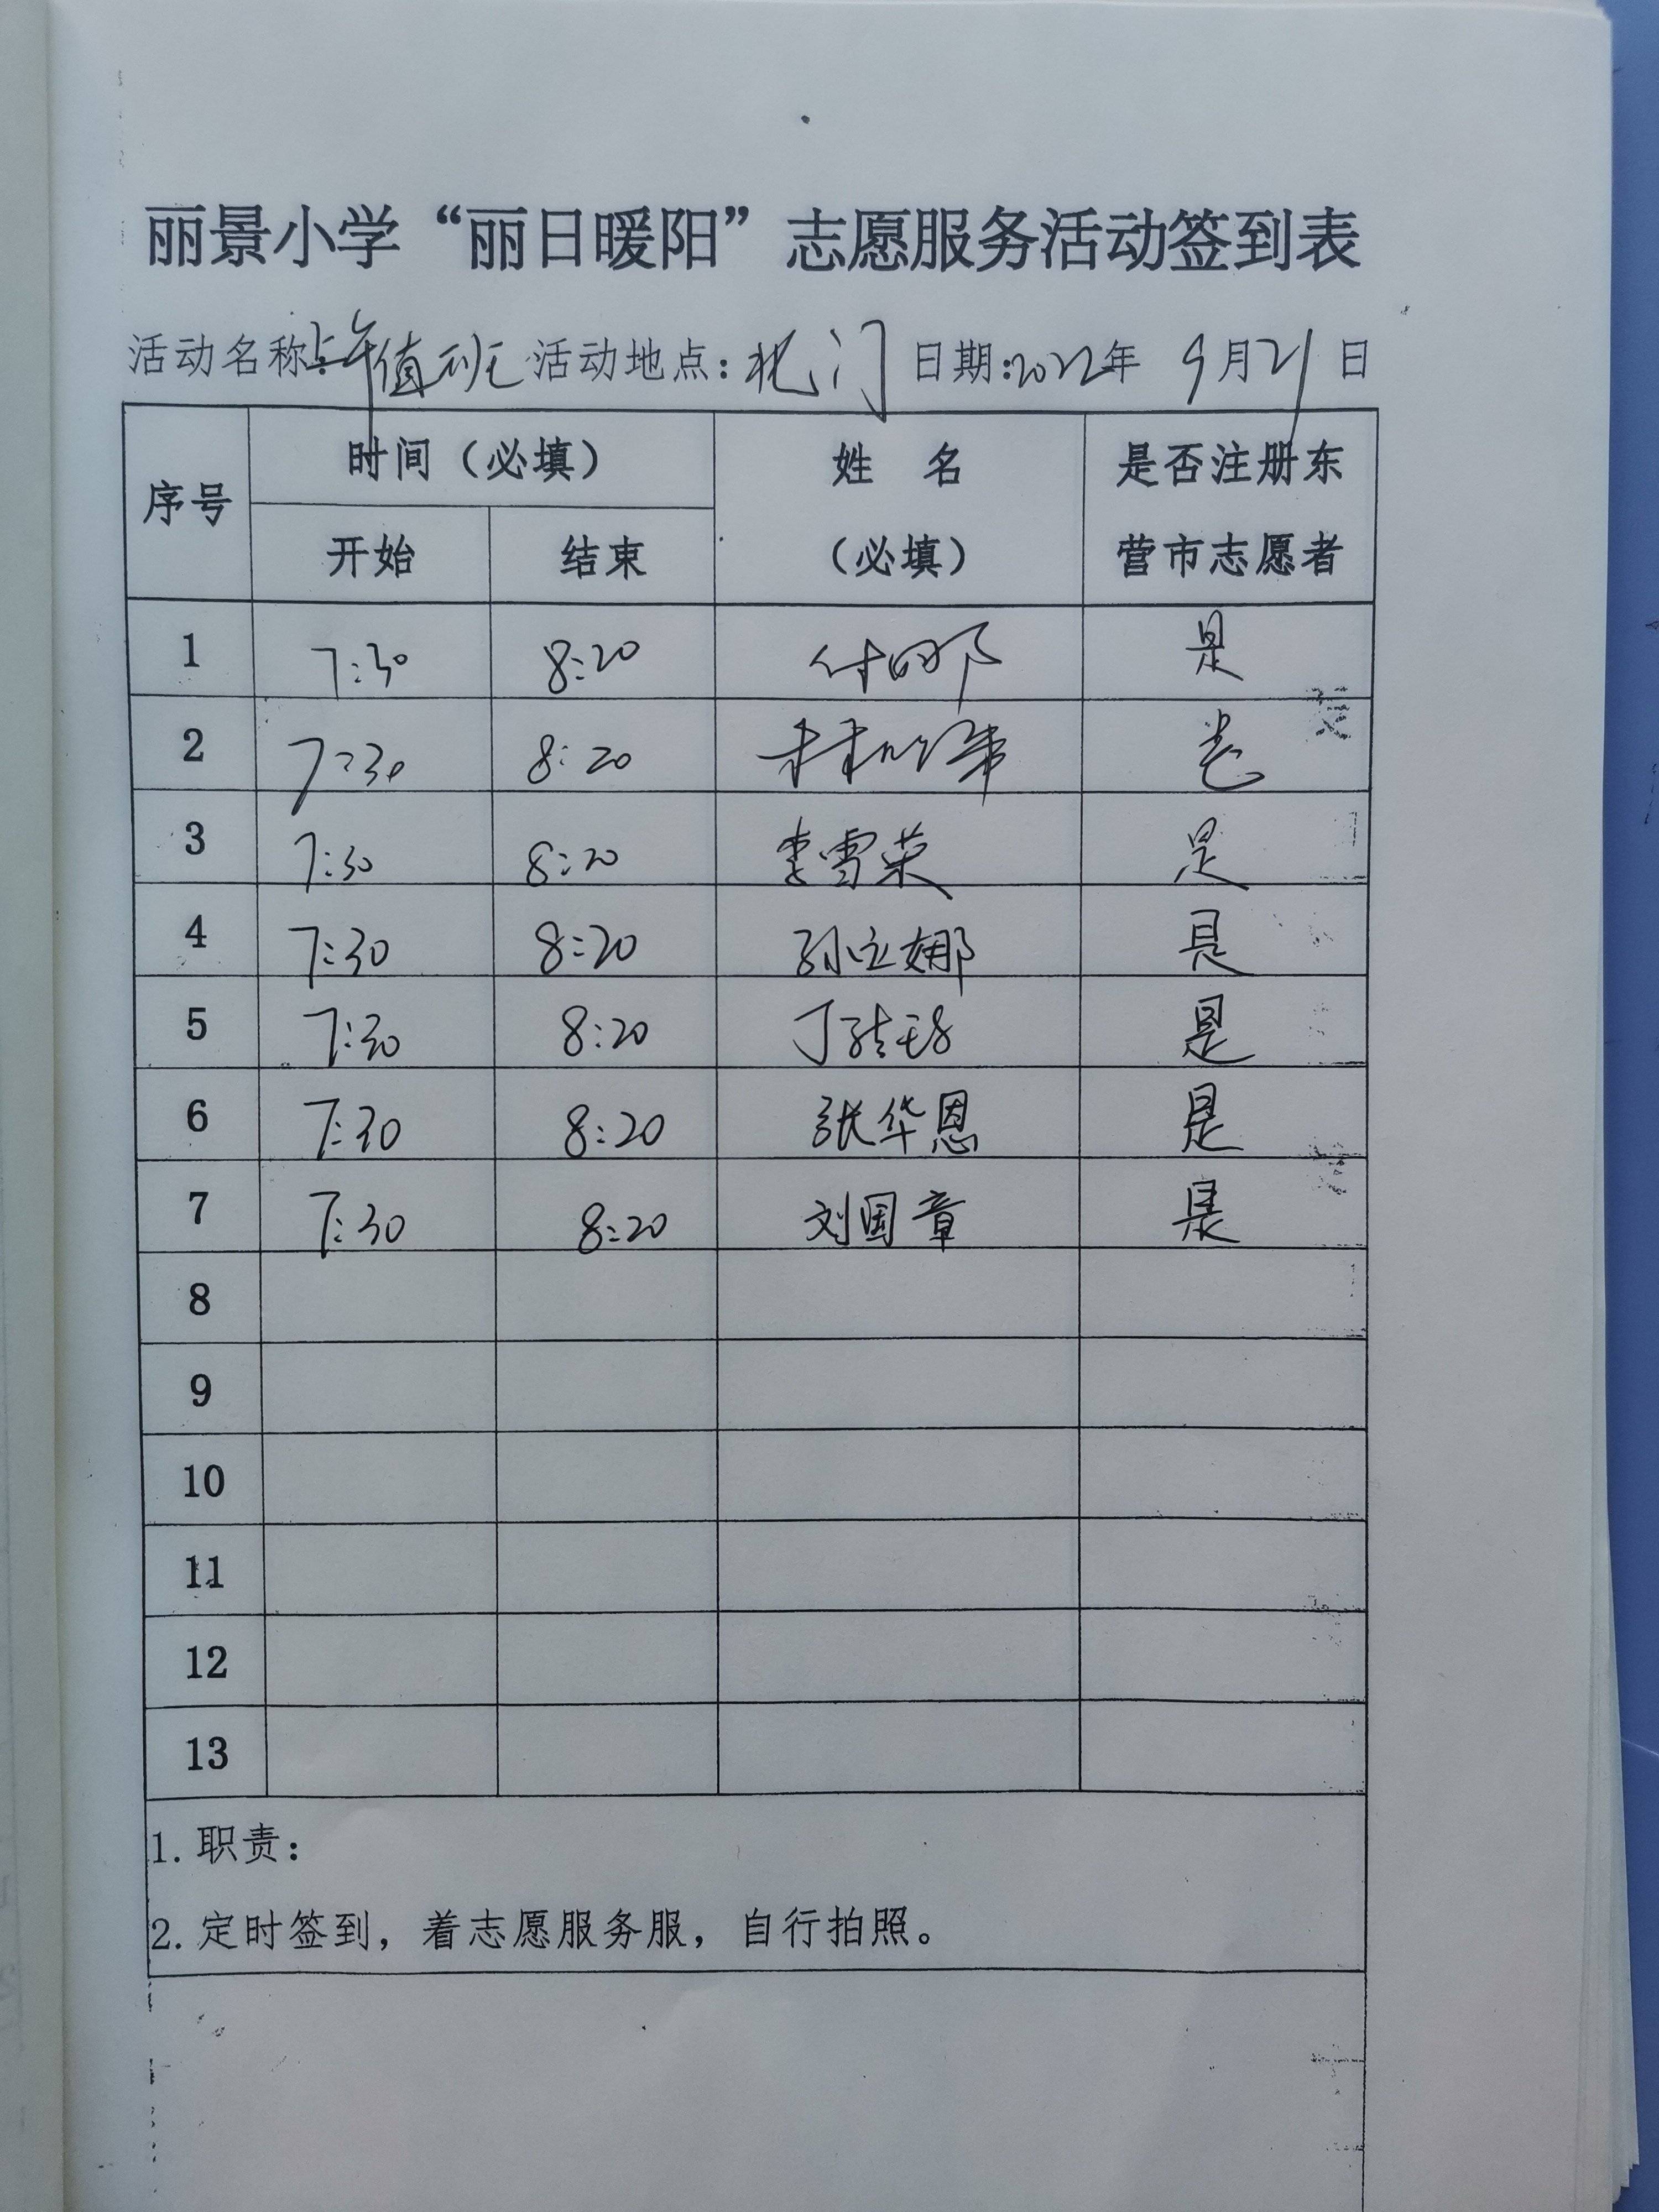 丽景小学“丽日暖阳”志愿服务活动签到表
活动名称:上午值班 活动地点:北门 日期:2022年 9月21日
序号 时间（必填） 姓 名（必填） 是否注册东营市志愿者
开始 结束
1 7:30 8:20 付明 是
2 7:30 8:20 是
3 7:30 8:20 李雪荣 是
4 7:30 8:20 孙立娜 是
5 7:30 8:20 丁 是
6 7:30 8:20 张华恩 是
7 7:30 8:20 刘国章 是
8
9
10
11
12
13
1. 职责:
2. 定时签到，着志愿服务服，自行拍照。